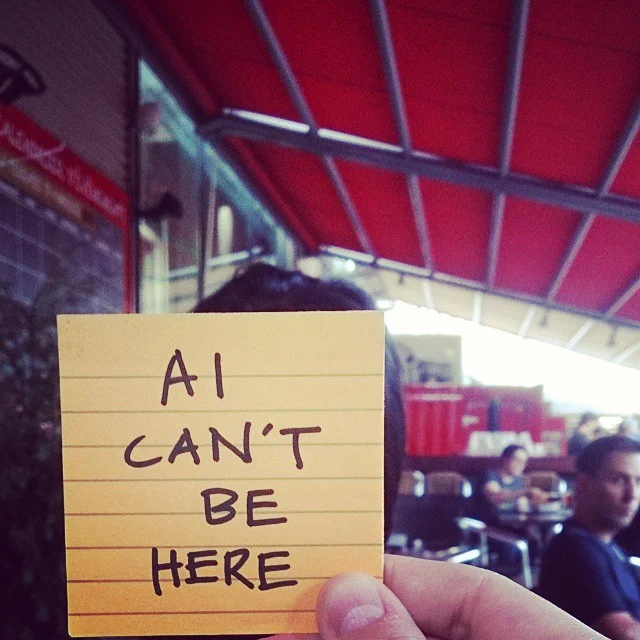 AI
CAN'T
BE
HERE